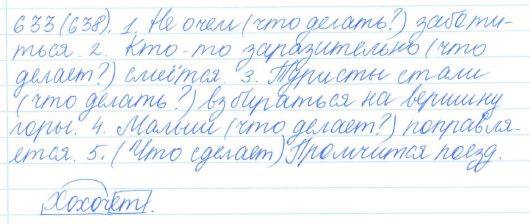 633(638). 1. Не очем (что делать?) заботи-
ться. 2. Кто-то заразительно (что
делает?) смеётся. 3. Туристы стали
(что делать?) взбираться на вершину
горы. 4. Малыш (что делает?) поправля-
ется. 5. (Что сделает) Промчится поезд.
Хохочет.